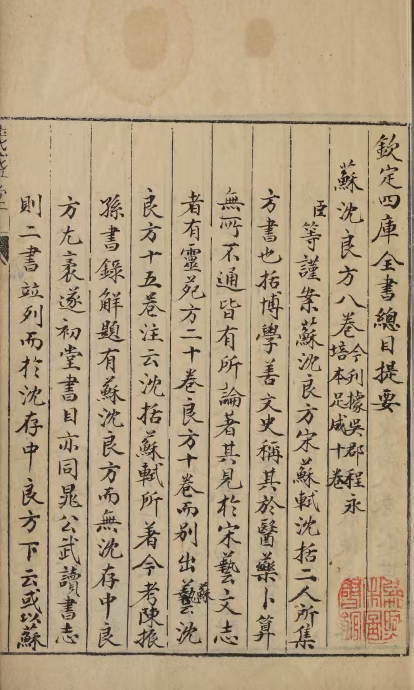 欽定四庫全書總目提要
蘇沈良方八卷今刋據吳郡程永培本足成十卷
臣等謹案蘇沈良方宋蘇軾沈括二人所集
方書也括博學善文史稱其於醫藥卜算
無所不通皆有所論著其見於宋藝文志
者有靈苑方二十卷良方十卷而別出蘇沈
良方十五卷注云沈括蘇軾所著今考陳振
孫書錄解題有蘇沈良方而無沈存中良
方尤袤遂初堂書目亦同晁公武讀書志
則二書竝列而於沈存中良方下云或以蘇